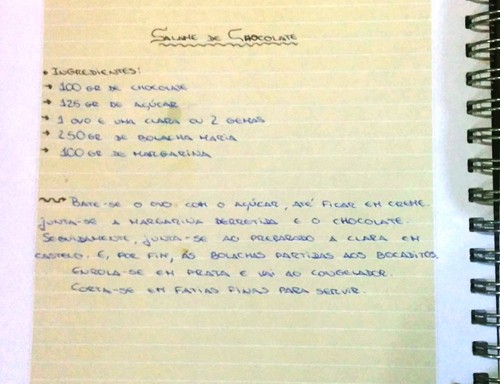 Salame de Chocolate
Ingredientes:
100 gr de chocolate
125 gr de açúcar
1 ovo e uma clara ou 2 gemas
250 gr de bolacha maria
100 gr de margarina
Bate-se o ovo com o açúcar, até ficar em creme.
Junta-se a margarina derretida e o chocolate.
Seguidamente, junta-se ao preparado a clara em
castelo. E, por fim, as bolachas partidas aos bocaditos.
Enrola-se em prata e vai ao congelador.
Corta-se em fatias finas para servir.